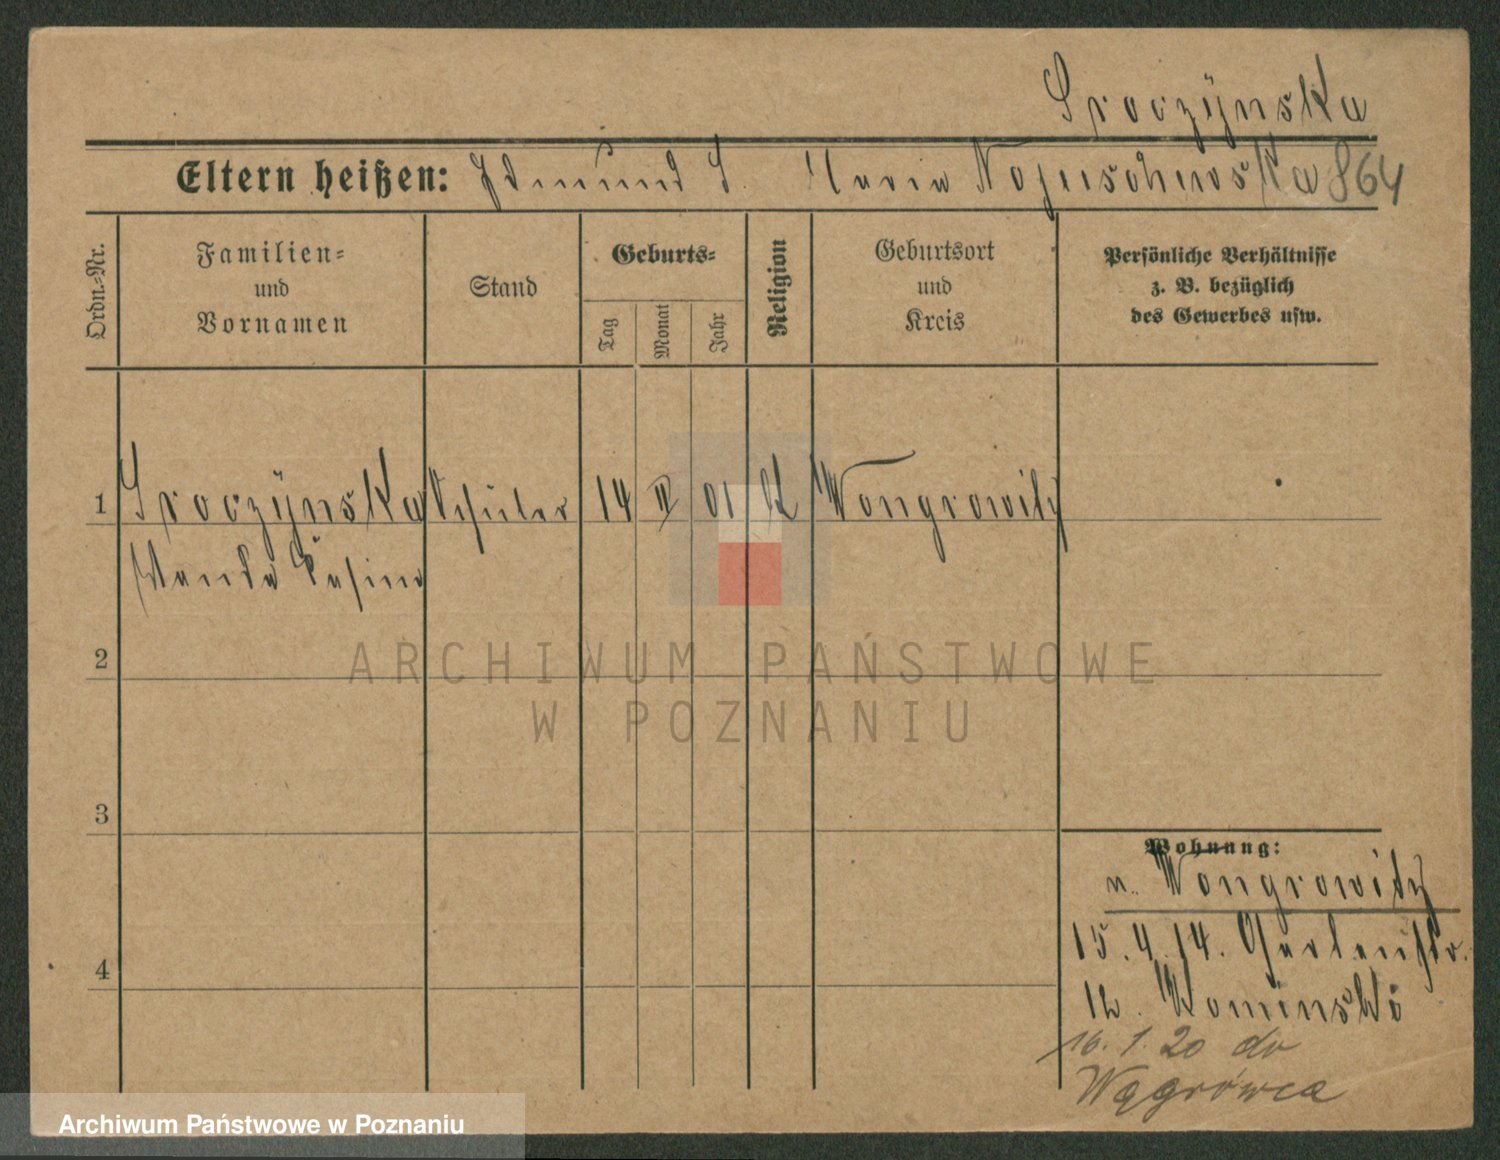 Sroczÿnska
Eltern heißen: Edmund S. Maria 864
Ordn.-Nr.
Familien-
und
Vornamen
Stand
Geburts-
Tag
Monat
Jahr
Religion
Geburtsort
und
Kreis
Persönliche Verhältnisse
z. B. bezüglich
des Gewerbes usw.
1 Sroczÿnska 14 II 01 K Wongrowitz
Wanda
2
ARCHIWUM PAŃSTWOWE
W POZNANIU
3
4
Wohnung:
n. Wongrowitz
15.4.14. Gartenstr.
12.
16.1.20 do
Wągrówca
Archiwum Państwowe w Poznaniu